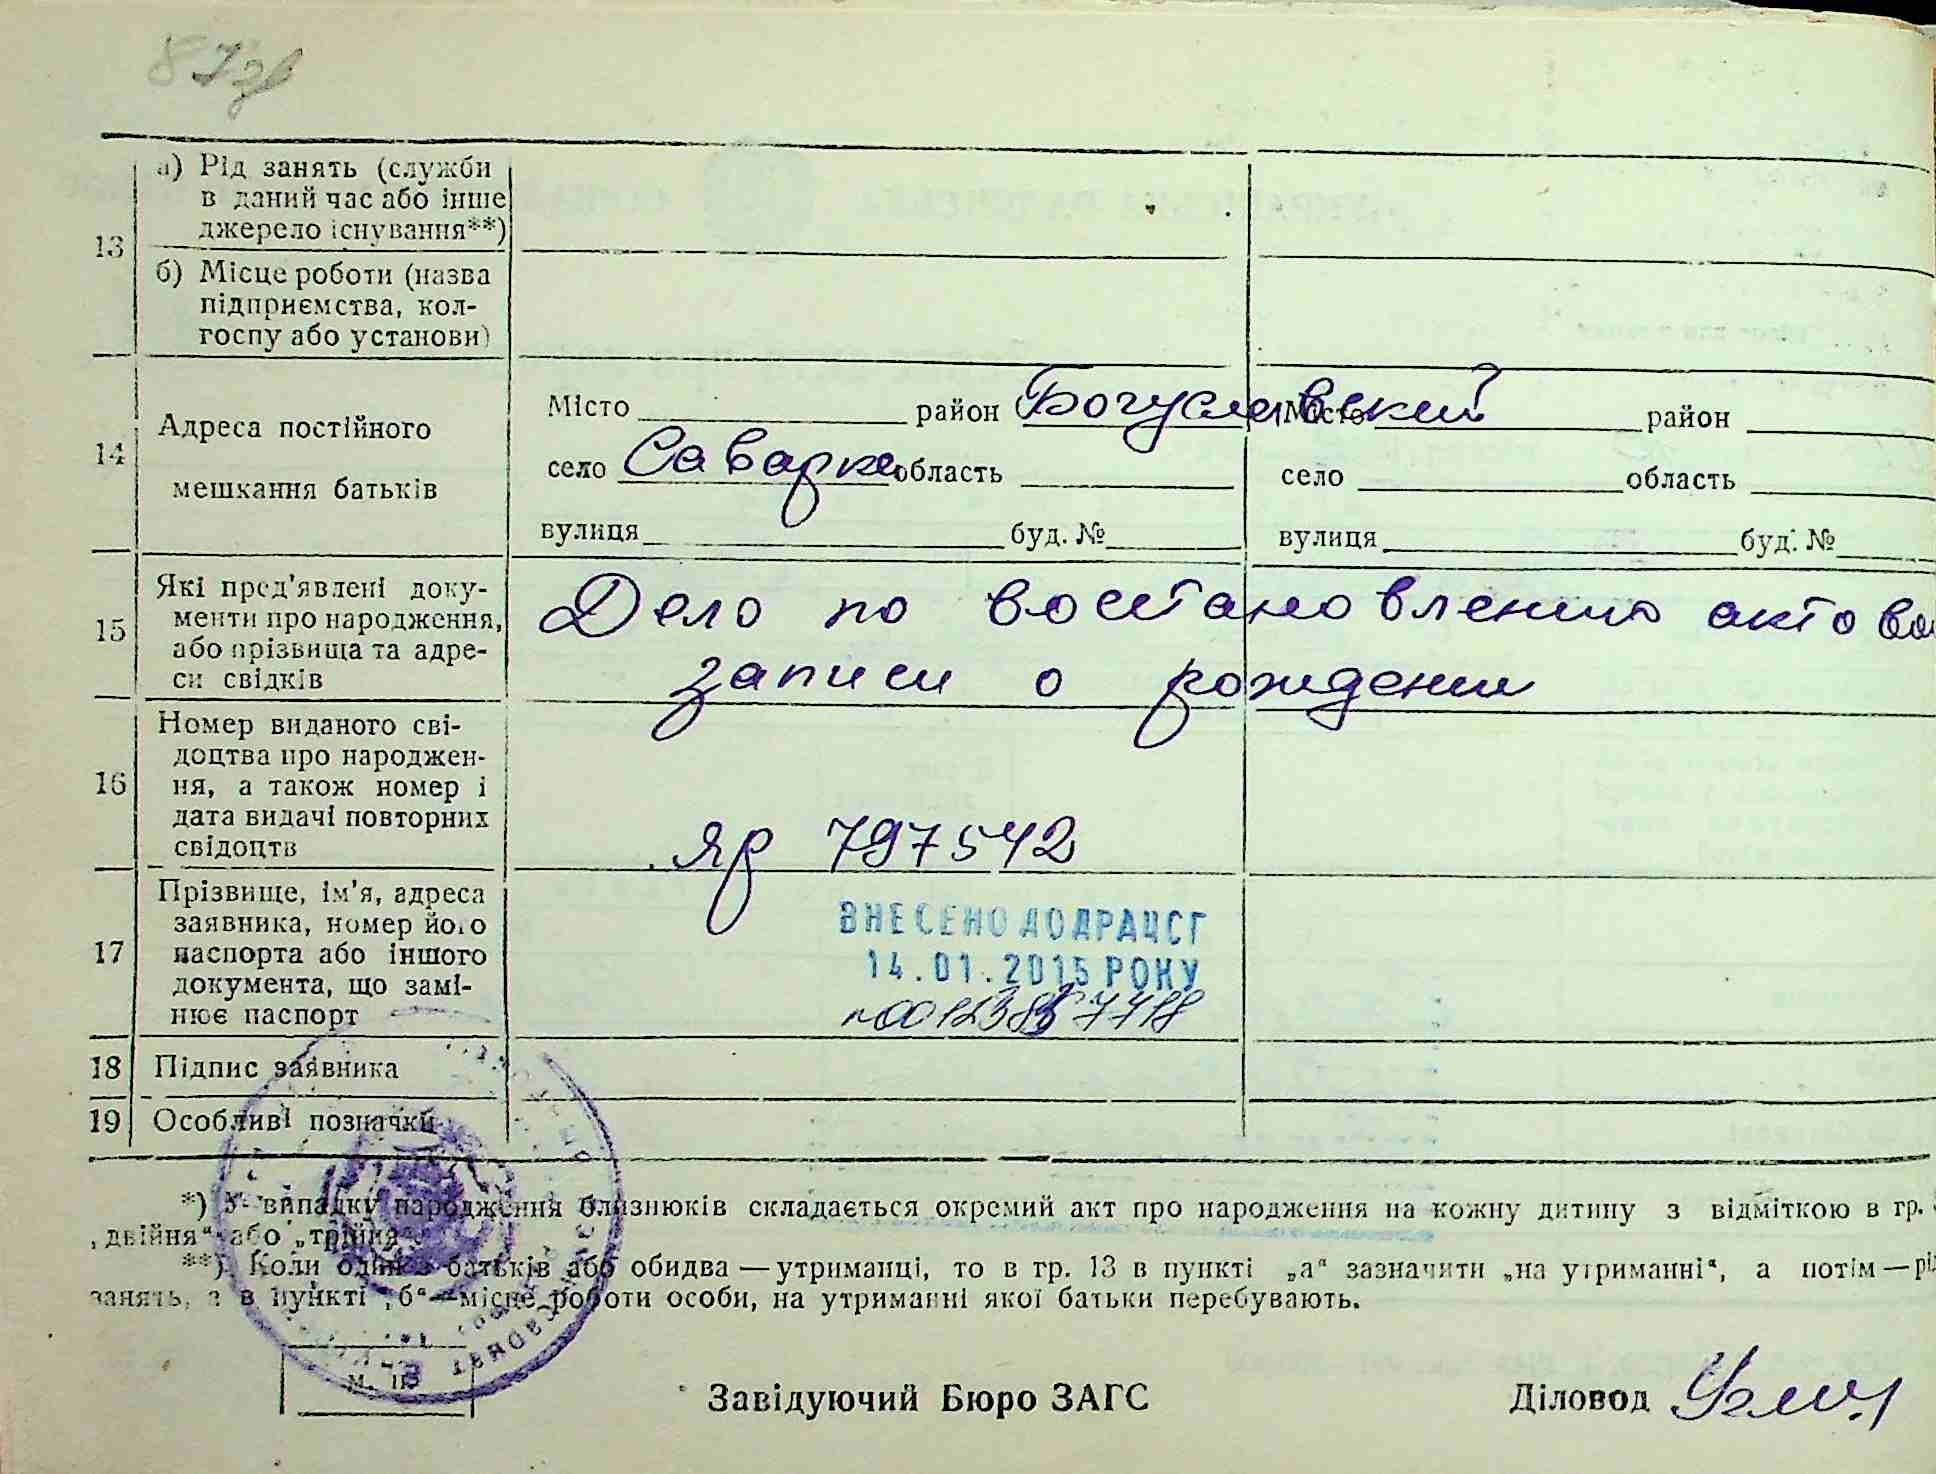 87зв
а) Рід занять (служби
в даний час або інше
джерело існування**)
13
б) Місце роботи (назва
підприємства, кол-
госпу або установи)
14
Адреса постійного
мешкання батьків
Місто район Богуславский
село Саварка область
вулиця буд. №
Місто район
село область
вулиця буд. №
15
Які пред'явлені доку-
менти про народження,
або прізвища та адре-
си свідків
Дело по восстановлению актовой
записи о рождении
16
Номер виданого сві-
доцтва про народжен-
ня, а також номер і
дата видачі повторних
свідоцтв
ЯР 797542
17
Прізвище, ім'я, адреса
заявника, номер його
паспорта або іншого
документа, що замі-
нює паспорт
ВНЕСЕНО ДО ДРАЦСГ
14.01.2015 РОКУ
18 Підпис заявника
19 Особливі позначки
*) У випадку народження близнюків складається окремий акт про народження на кожну дитину з відміткою в гр.
„двійня“ або „трійня
**) Коли один з батьків або обидва — утриманці, то в гр. 13 в пункті „а“ зазначити „на утриманні“, а потім — рід
занять, а в пункті „б“ — місце роботи особи, на утриманні якої батьки перебувають.
М. П.
Завідуючий Бюро ЗАГС
Діловод